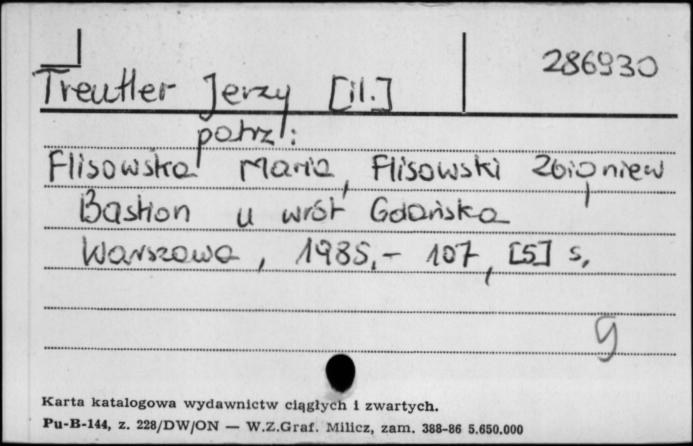 286930
Treutler Jerzy [il.]
patrz:
Flisowska Maria, Flisowski Zbigniew
Bastion u wrót Gdańska
Warszawa, 1985,- 107, [5] s.
g
Karta katalogowa wydawnictw ciągłych i zwartych.
Pu-B-144, z. 228/DW/ON — W.Z.Graf. Milicz, zam. 388-86 5.650.000